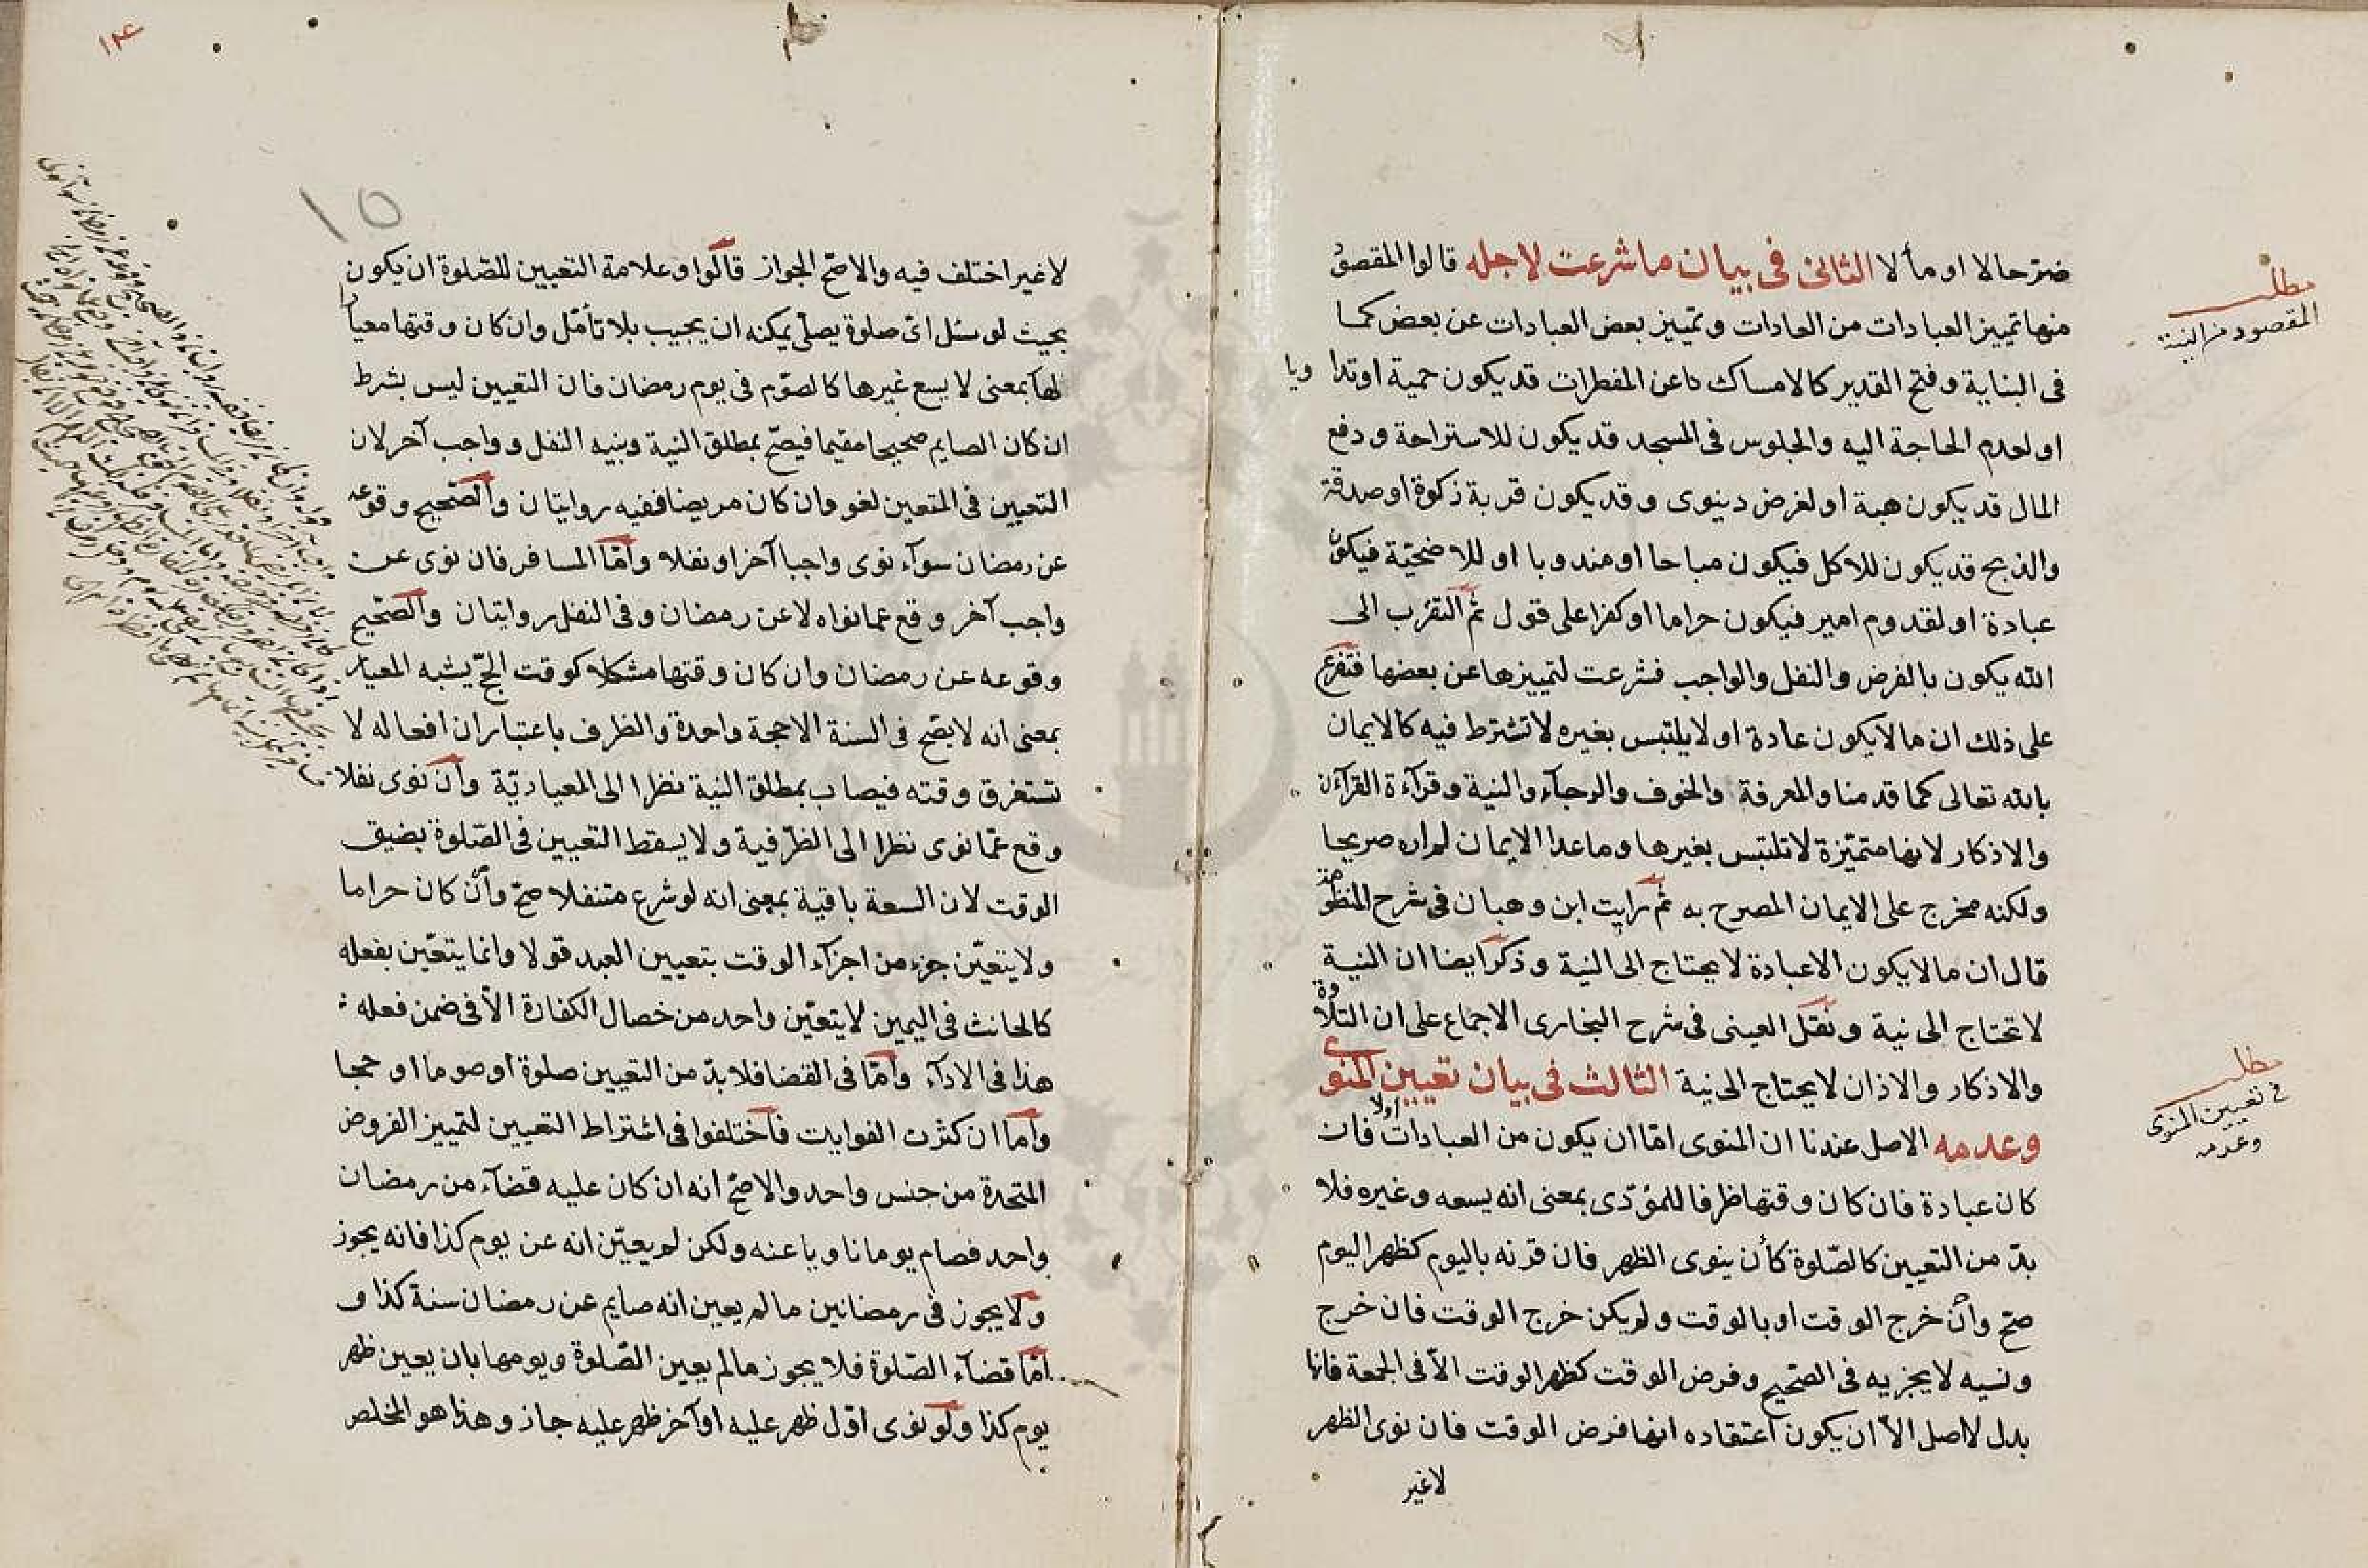 ضر حالا او مألا الثانى فى بيان ما شرعت لاجله قالوا المقصود
منها تمييز العبادات من العادات وتمييز بعض العبادات عن بعض كما
فى البناية وفتح القدير كالامساك عن المفطرات قد يكون حمية او تداويا
او لعدم الحاجة اليه والجلوس فى المسجد قد يكون للاستراحة ودفع
المال قد يكون هبة او لغرض دينوى وقد يكون قربة زكوة او صدقة
والذبح قد يكون للاكل فيكون مباحا او مندوبا او للاضحيّة فيكون
عبادة او لقدوم امير فيكون حراما او كفرا على قول ثم التقرب الى
الله يكون بالفرض والنفل والواجب فشرعت لتمييزها عن بعضها فتفرع
على ذلك ان ما لا يكون عادة او لا يلتبس بغيره لا تشترط فيه كالايمان
بالله تعالى كما قدمنا والمعرفة والخوف والرجآء والنية وقرآءة القرآن
والاذكار لانها متميّزة لا تلتبس بغيرها وما عدا الايمان لم اره صريحا
ولكنه مخرج على الايمان المصرح به ثم رايت ابن وهبان فى شرح المنظومة
قال ان ما لا يكون الا عبادة لا يحتاج الى النية وذكر ايضا ان النية
لا تحتاج الى نية ونقل العينى فى شرح البخارى الاجماع على ان التلاوة
والاذكار والاذان لا يحتاج الى نية الثالث فى بيان تعيين المنوى
وعدمه الاصل عندنا ان المنوى امّا ان يكون من العبادات اولا فان
كان عبادة فان كان وقتها ظرفا للمؤدّى بمعنى انه يسعه وغيره فلا
بدّ من التعيين كالصّلوة كأن ينوى الظهر فان قرنه باليوم كظهر اليوم
صحّ وان خرج الوقت او بالوقت ولم يكن خرج الوقت فان خرج
ونسيه لا يجزيه فى الصّحيح وفرض الوقت كظهر الوقت الاّ فى الجمعة فانها
بدل لا اصل الاّ ان يكون اعتقاده انها فرض الوقت فان نوى الظهر
لاغير
مطلب
المقصود من النية
مطلب
فى تعيين المنوى
وعدمه
١٤
١٥
لا غير اختلف فيه والاصحّ الجواز قالوا وعلامة التعيين للصّلوة ان يكون
بحيث لو سئل اىّ صلوة يصلّى يمكنه ان يجيب بلا تأمّل وان كان وقتها معيارا
لها بمعنى لا يسع غيرها كالصوّم فى يوم رمضان فان التعيين ليس بشرط
ان كان الصايم صحيحا مقيما فيصحّ بمطلق النية وبنية النفل وواجب آخر لان
التعيين فى المتعين لغو وان كان مريضا ففيه روايتان والصّحيح وقوعه
عن رمضان سوآء نوى واجبا آخر او نفلا وامّا المسافر فان نوى عن
واجب آخر وقع عما نواه لا عن رمضان وفى النفل روايتان والصّحيح
وقوعه عن رمضان وان كان وقتها مشكلا كوقت الحجّ يشبه المعيار
بمعنى انه لا يصّح فى السنة الا حجة واحدة والظرف باعتبار ان افعاله لا
تستغرق وقته فيصاب بمطلق النية نظرا الى المعياديّة وان نوى نفلا
وقع عمّا نوى نظرا الى الظرّفية ولا يسقط التّعيين فى الصّلوة بضيق
الوقت لان السعة باقية بمعنى انه لو شرع متنفلا صحّ وان كان حراما
ولا يتعيّن جزء من اجزآء الوقت بتعيين العبد قولا وانما يتعّين بفعله
كالحانث فى اليمين لا يتعيّن واحد من خصال الكفارة الاّ فى ضمن فعله
هذا فى الادآء وامّا فى القضا فلا بدّ من التعيين صلوة او صوما او حجا
وامّا ان كثرت الفوايت فاختلفوا فى اشتراط التعيين لتمييز الفروض
المتحدة من جنس واحد والاصحّ انه ان كان عليه قضآء من رمضان
واحد فصام يوما ناويا عنه ولكن لم يعيّن انه عن يوم كذا فانه يجوز
ولا يجوز فى رمضانين ما لم يعين انه صايم عن رمضان سنة كذا و
امّا قضآء الصّلوة فلا يجوز مالم يعين الصّلوة ويومها بان يعين ظهر
يوم كذا ولو نوى اوّل ظهر عليه او آخر ظهر عليه جاز وهذا هو المخلص